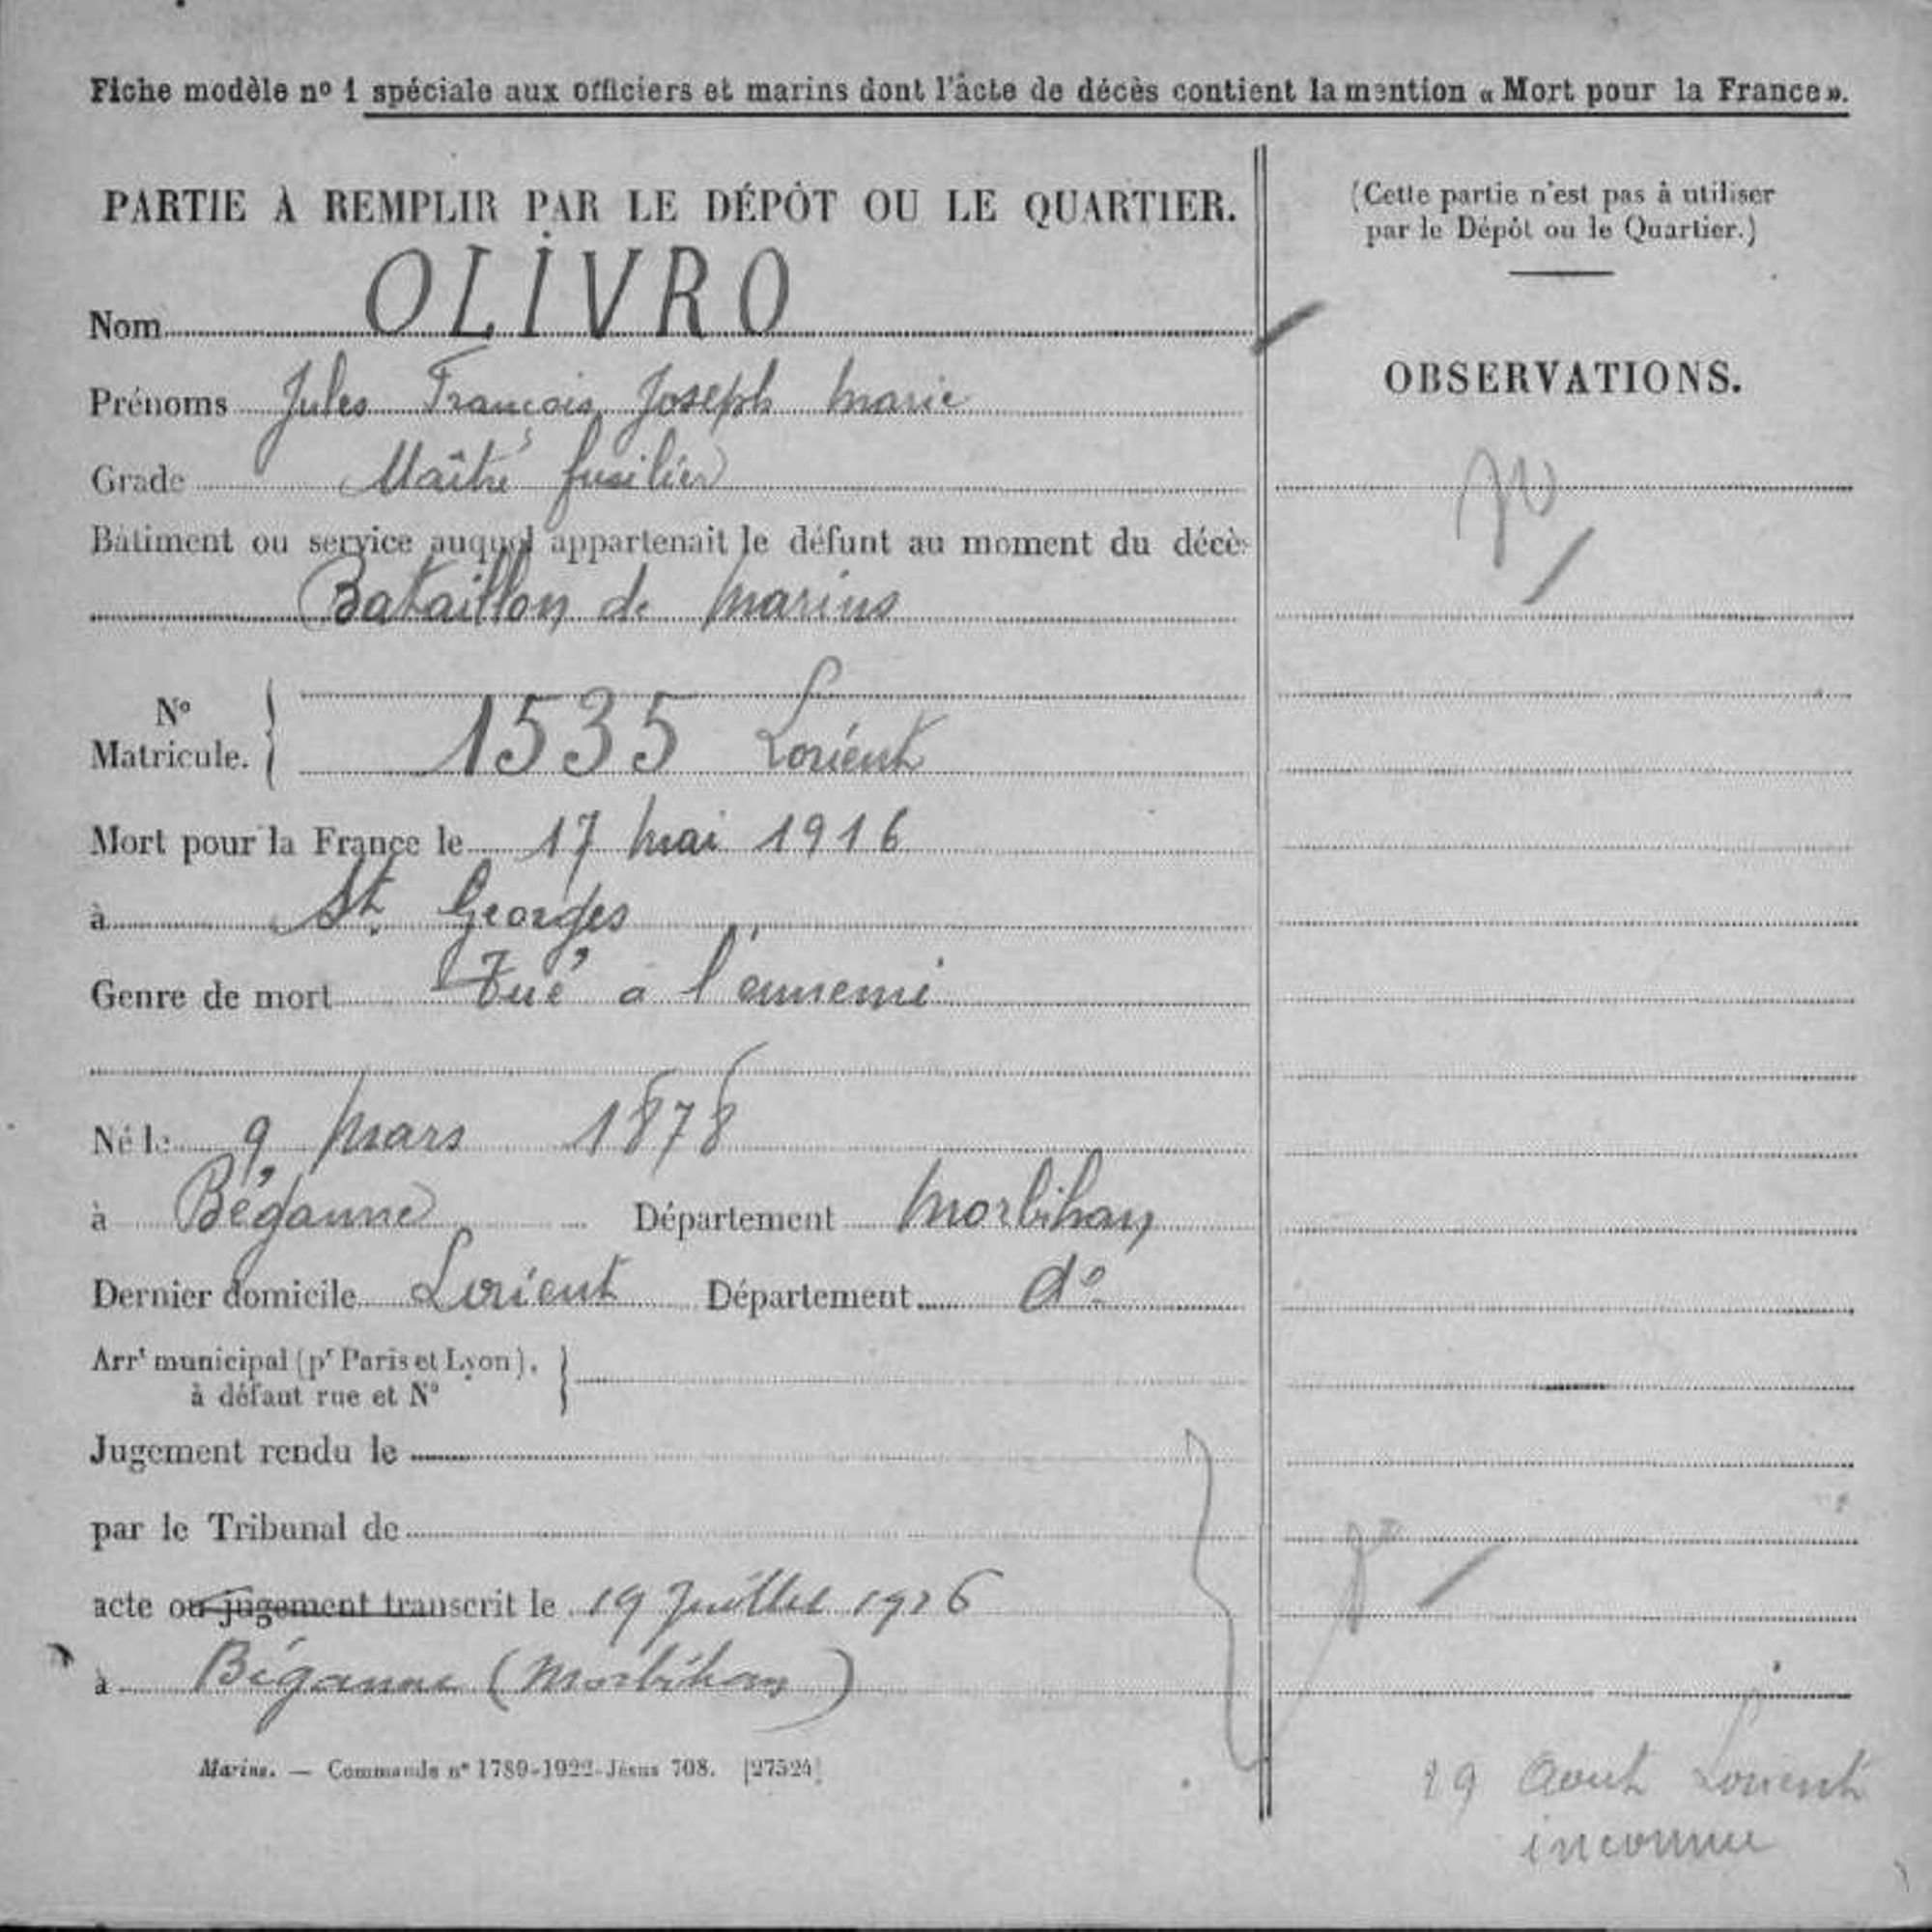 Fiche modèle nº 1 spéciale aux officiers et marins dont l'acte de décès contient la mention « Mort pour la France ».
PARTIE À REMPLIR PAR LE DÉPÔT OU LE QUARTIER.
Nom OLIVRO
Prénoms Jules François Joseph Marie
Grade Maître fusilier
Bâtiment ou service auquel appartenait le défunt au moment du décès
Bataillon de Marins
Nº Matricule. 1535 Lorient
Mort pour la France le 17 Mai 1916
à St. Georges
Genre de mort Tué à l'ennemi
Né le 9 Mars 1878
à Béganne Département Morbihan
Dernier domicile Lorient Département dº
Arrt municipal (pr Paris et Lyon),
à défaut rue et Nº
Jugement rendu le
par le Tribunal de
acte ou jugement transcrit le 19 Juillet 1926
à Béganne (Morbihan)
Marine. — Commande nº 1789-1922-Jésus 708. [27524]
(Cette partie n'est pas à utiliser
par le Dépôt ou le Quartier.)
OBSERVATIONS.
29 Aout Lorient
inconnu